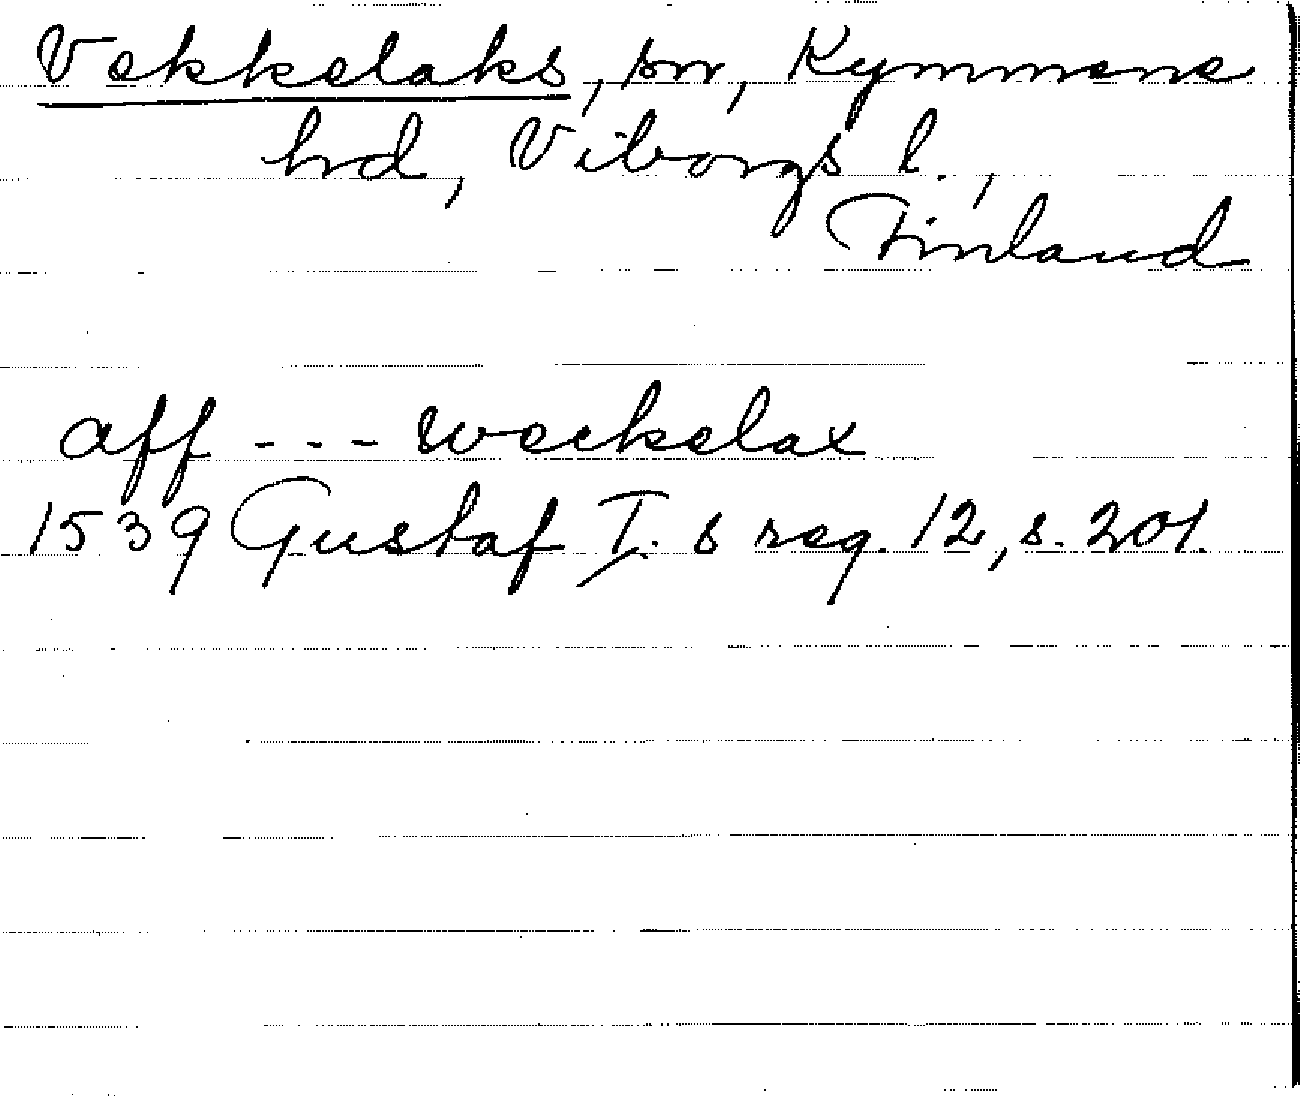 Vekkelaks, sn, Kymmene
hd, Viborgs l.,
Finland
aff --- weckelax
1539 Gustaf I. s reg. 12, s. 201.